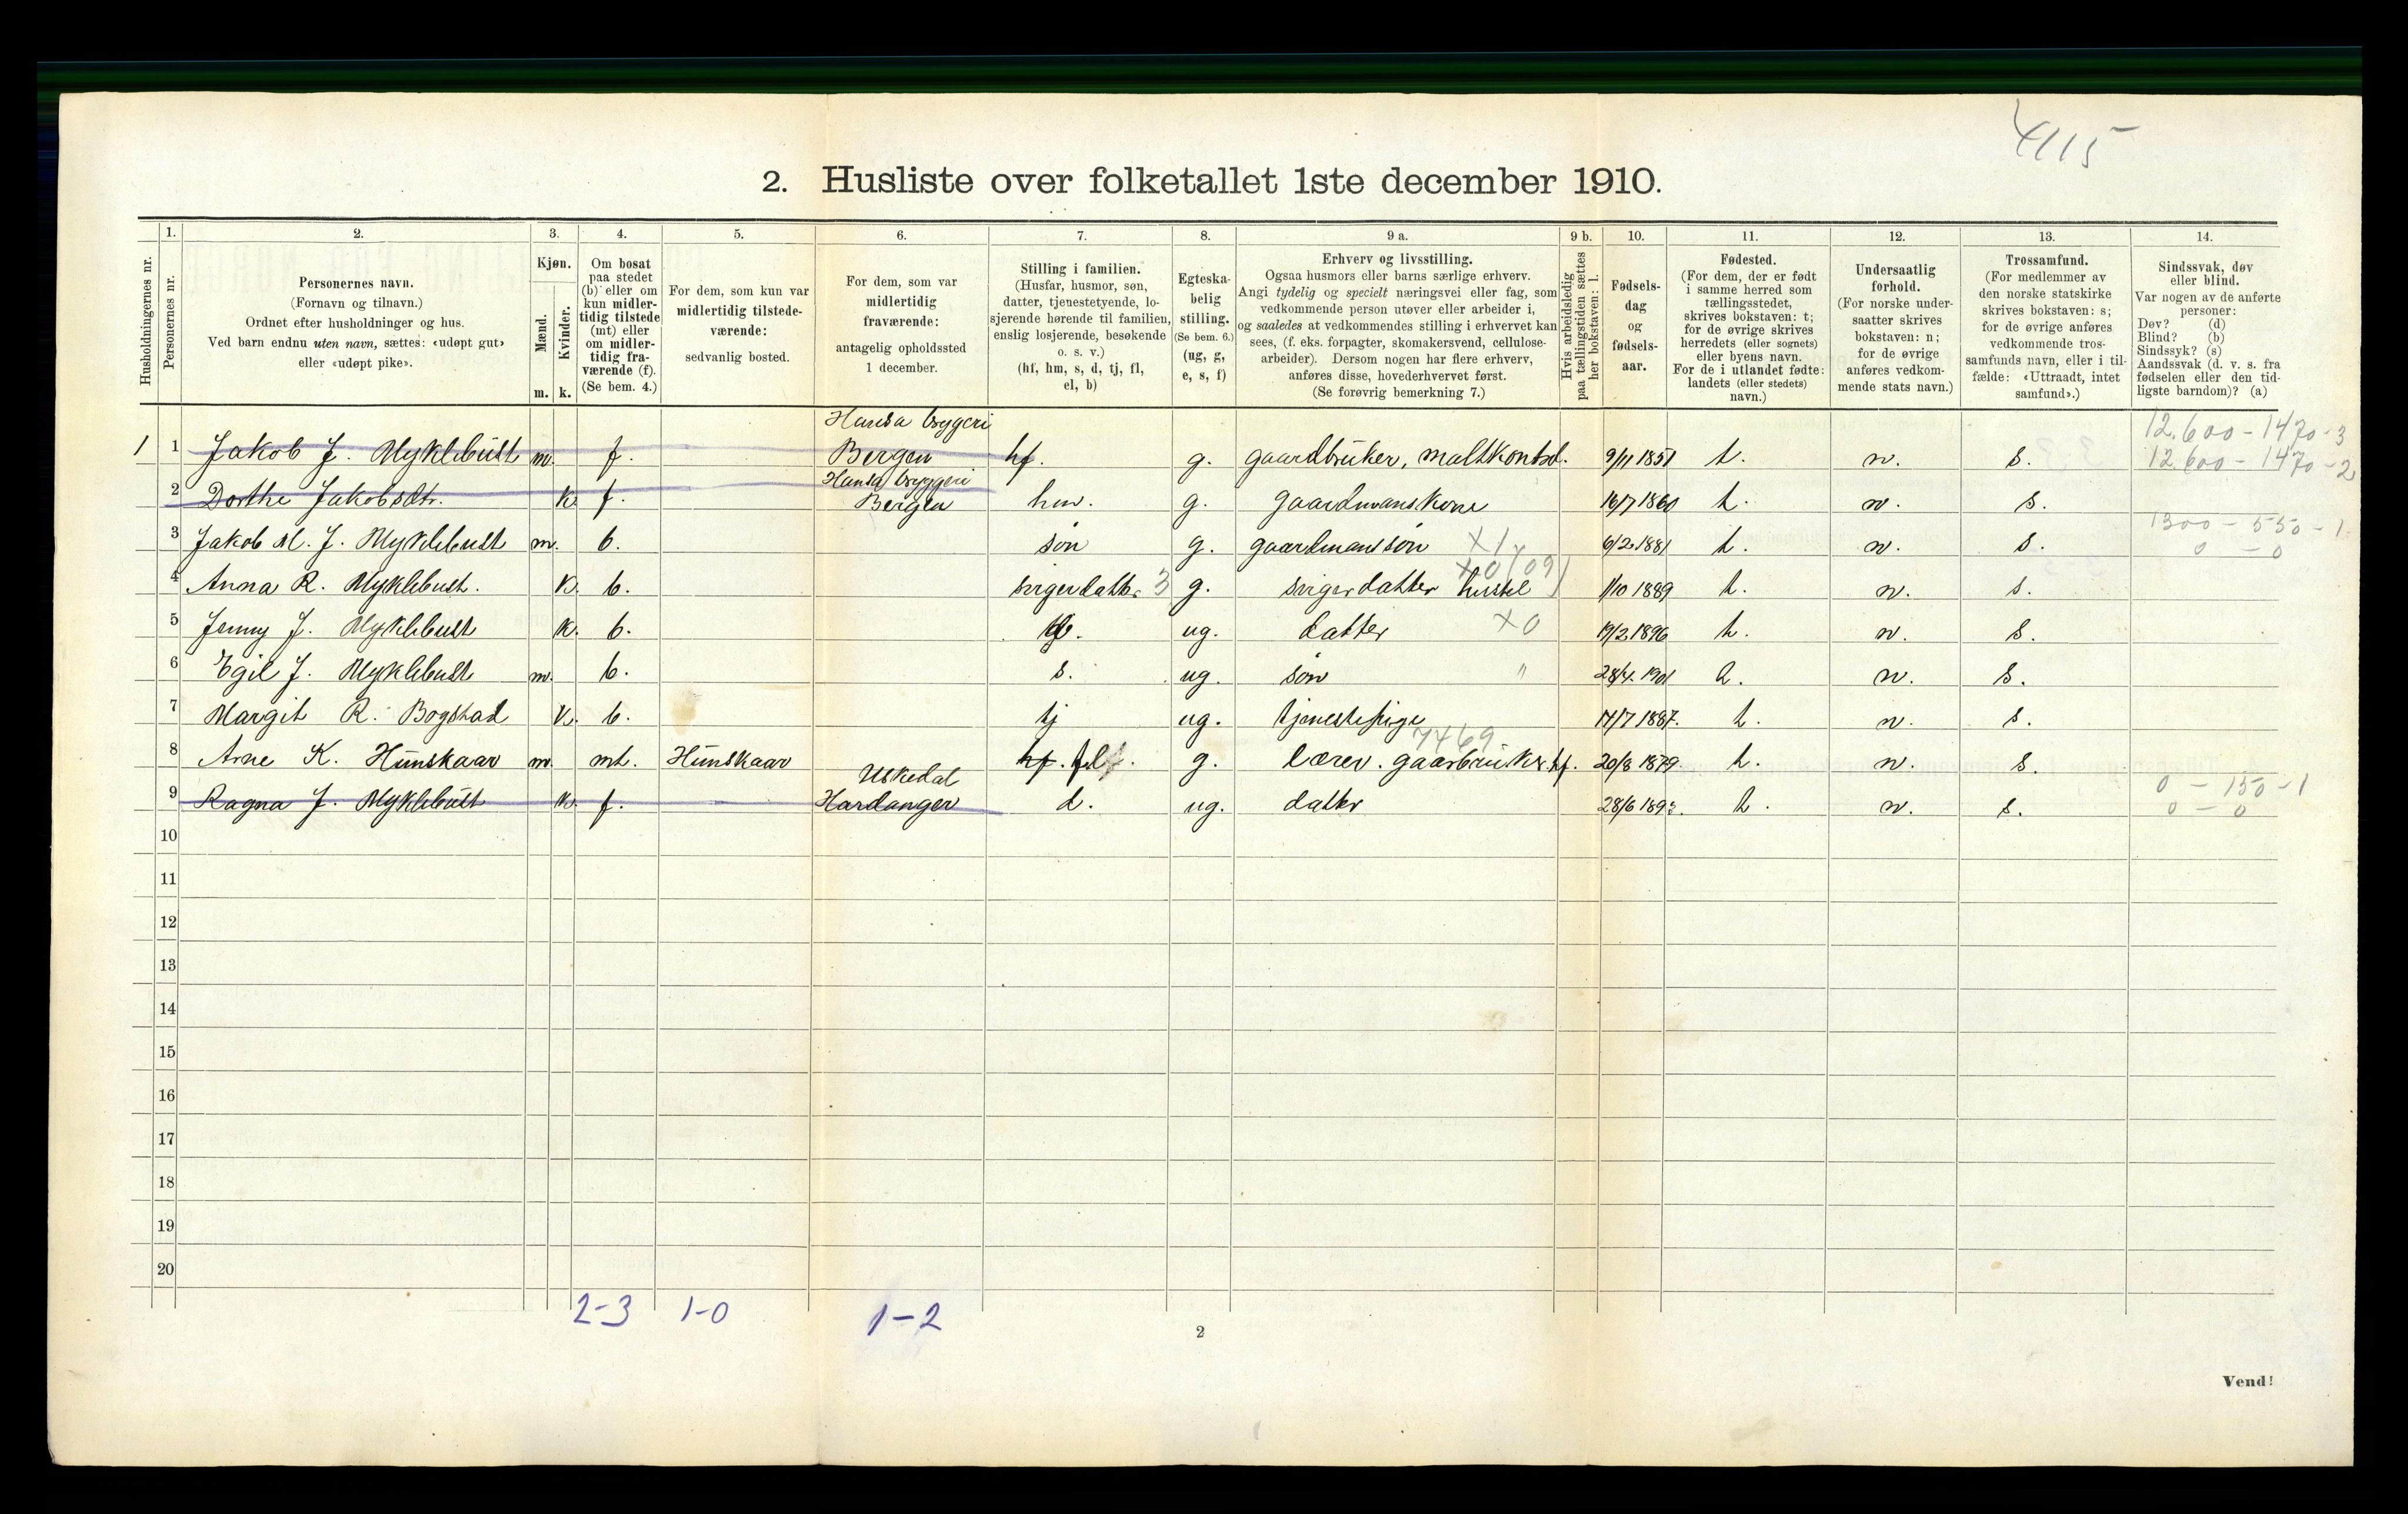 4115
2. Husliste over folketallet 1ste december 1910.
Husholdningernes nr.
1. Personernes nr.
2. Personernes navn.
(Fornavn og tilnavn.)
Ordnet efter husholdninger og hus.
Ved barn endnu uten navn, sættes: «udøpt gut»
eller «udøpt pike».
3. Kjøn.
Mænd. m.
Kvinder. k.
4. Om bosat
paa stedet
(b) eller om
kun midler-
tidig tilstede
(mt) eller
om midler-
tidig fra-
værende (f).
(Se bem. 4.)
5. For dem, som kun var
midlertidig tilstede-
værende:
sedvanlig bosted.
6. For dem, som var
midlertidig
fraværende:
antagelig opholdssted
1 december.
7. Stilling i familien.
(Husfar, husmor, søn,
datter, tjenestetyende, lo-
sjerende hørende til familien,
enslig losjerende, besøkende
o. s. v.)
(hf, hm, s, d, tj, fl,
el, b)
8. Egteska-
belig
stilling.
(Se bem. 6.)
(ug, g,
e, s, f)
9 a. Erhverv og livsstilling.
Ogsaa husmors eller barns særlige erhverv.
Angi tydelig og specielt næringsvei eller fag, som
vedkommende person utøver eller arbeider i,
og saaledes at vedkommendes stilling i erhvervet kan
sees, (f. eks. forpagter, skomakersvend, cellulose-
arbeider). Dersom nogen har flere erhverv,
anføres disse, hovederhvervet først.
(Se forøvrig bemerkning 7.)
9 b. Hvis arbeidsledig
paa tællingstiden sættes
her bokstaven: l.
10. Fødsels-
dag
og
fødsels-
aar.
11. Fødested.
(For dem, der er født
i samme herred som
tællingsstedet,
skrives bokstaven: t;
for de øvrige skrives
herredets (eller sognets)
eller byens navn.
For de i utlandet fødte:
landets (eller stedets)
navn.)
12. Undersaatlig
forhold.
(For norske under-
saatter skrives
bokstaven: n;
for de øvrige
anføres vedkom-
mende stats navn.)
13. Trossamfund.
(For medlemmer av
den norske statskirke
skrives bokstaven: s;
for de øvrige anføres
vedkommende tros-
samfunds navn, eller i til-
fælde: «Uttraadt, intet
samfund».)
14. Sindssvak, døv
eller blind.
Var nogen av de anførte
personer:
Døv? (d)
Blind? (b)
Sindssyk? (s)
Aandssvak (d. v. s. fra
fødselen eller den tid-
ligste barndom)? (a)
Hansa bryggeri 12.600 - 1470 - 3
1 1 Jakob J. Myklebust m. f. Bergen hf. g. gaardbruker, maltkontrol. 9/11 1851 t. n. s. 12.600 - 1470 - 2
Hansa bryggeri
2 Dorthe Jakobsdtr. k. f. Bergen hm. g. gaardmanskone 16/7 1860 t. n. s.
1300 - 550 - 1
3 Jakob M. J. Myklebust m. b. søn g. gaardmanssøn X1 6/2 1881 t. n. s. 0 - 0
4 Anna R. Myklebust. k. b. svigerdatter 3 g. svigerdatter husstel X0 (09) 1/10 1889 t. n. s.
5 Jenny J. Myklebust k. b. d. ug. datter X0 19/2 1896 t. n. s.
6 Egil J. Myklebust m. b. s. ug. søn " 28/4. 1901 t. n. s.
7 Margit R. Bogstad k. b. tj ug. tjenestepige 17/7 1887. t. n. s.
7469
8 Arne K. Hunskaar m. mt. Hunskaar hf. g. lærer. gaarbruker hf. 20/8 1879. t. n. s.
Uskedal 0 - 150 - 1
9 Ragna J. Myklebust k. f. Hardanger d. ug. datter 28/6 1893. t. n. s. 0 - 0
10
11
12
13
14
15
16
17
18
19
20
2-3 1-0 1-2
2
Vend!